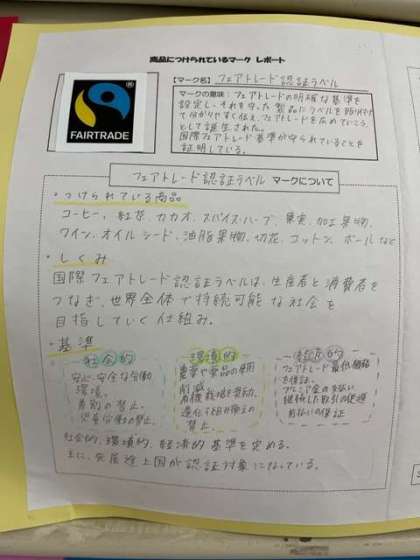 商品につけられているマーク レポート
FAIRTRADE
【マーク名】フェアトレード認証ラベル
マークの意味：フェアトレードの明確な基準を
設定し、それを守った製品にラベルを貼り付け
て分かりやすく伝え、フェアトレードを広めていこう
として誕生された。
国際フェアトレード基準が守られていることを
証明している。
フェアトレード認証ラベル マークについて
・つけられている商品
コーヒー、紅茶、カカオ、スパイス・ハーブ、果実、加工果物、
ワイン、オイルシード、油脂果物、切花、コットン、ボールなど
・しくみ
国際フェアトレード認証ラベルは、生産者と消費者を
つなぎ、世界全体で持続可能な社会を
目指していく仕組み。
・基準
社会的
安心・安全な労働
環境、
差別の禁止、
児童労働の禁止、
環境的
農薬や薬品の使用
削減
有機栽培を奨励、
遺伝子組み換えの
禁止、
経済的
フェアトレード最低価格
を保証、
プレミアム金の支払い
継続した取引の促進
前払いの保証
社会的、環境的、経済的基準を定める。
主に、発展途上国が認証対象になっている。